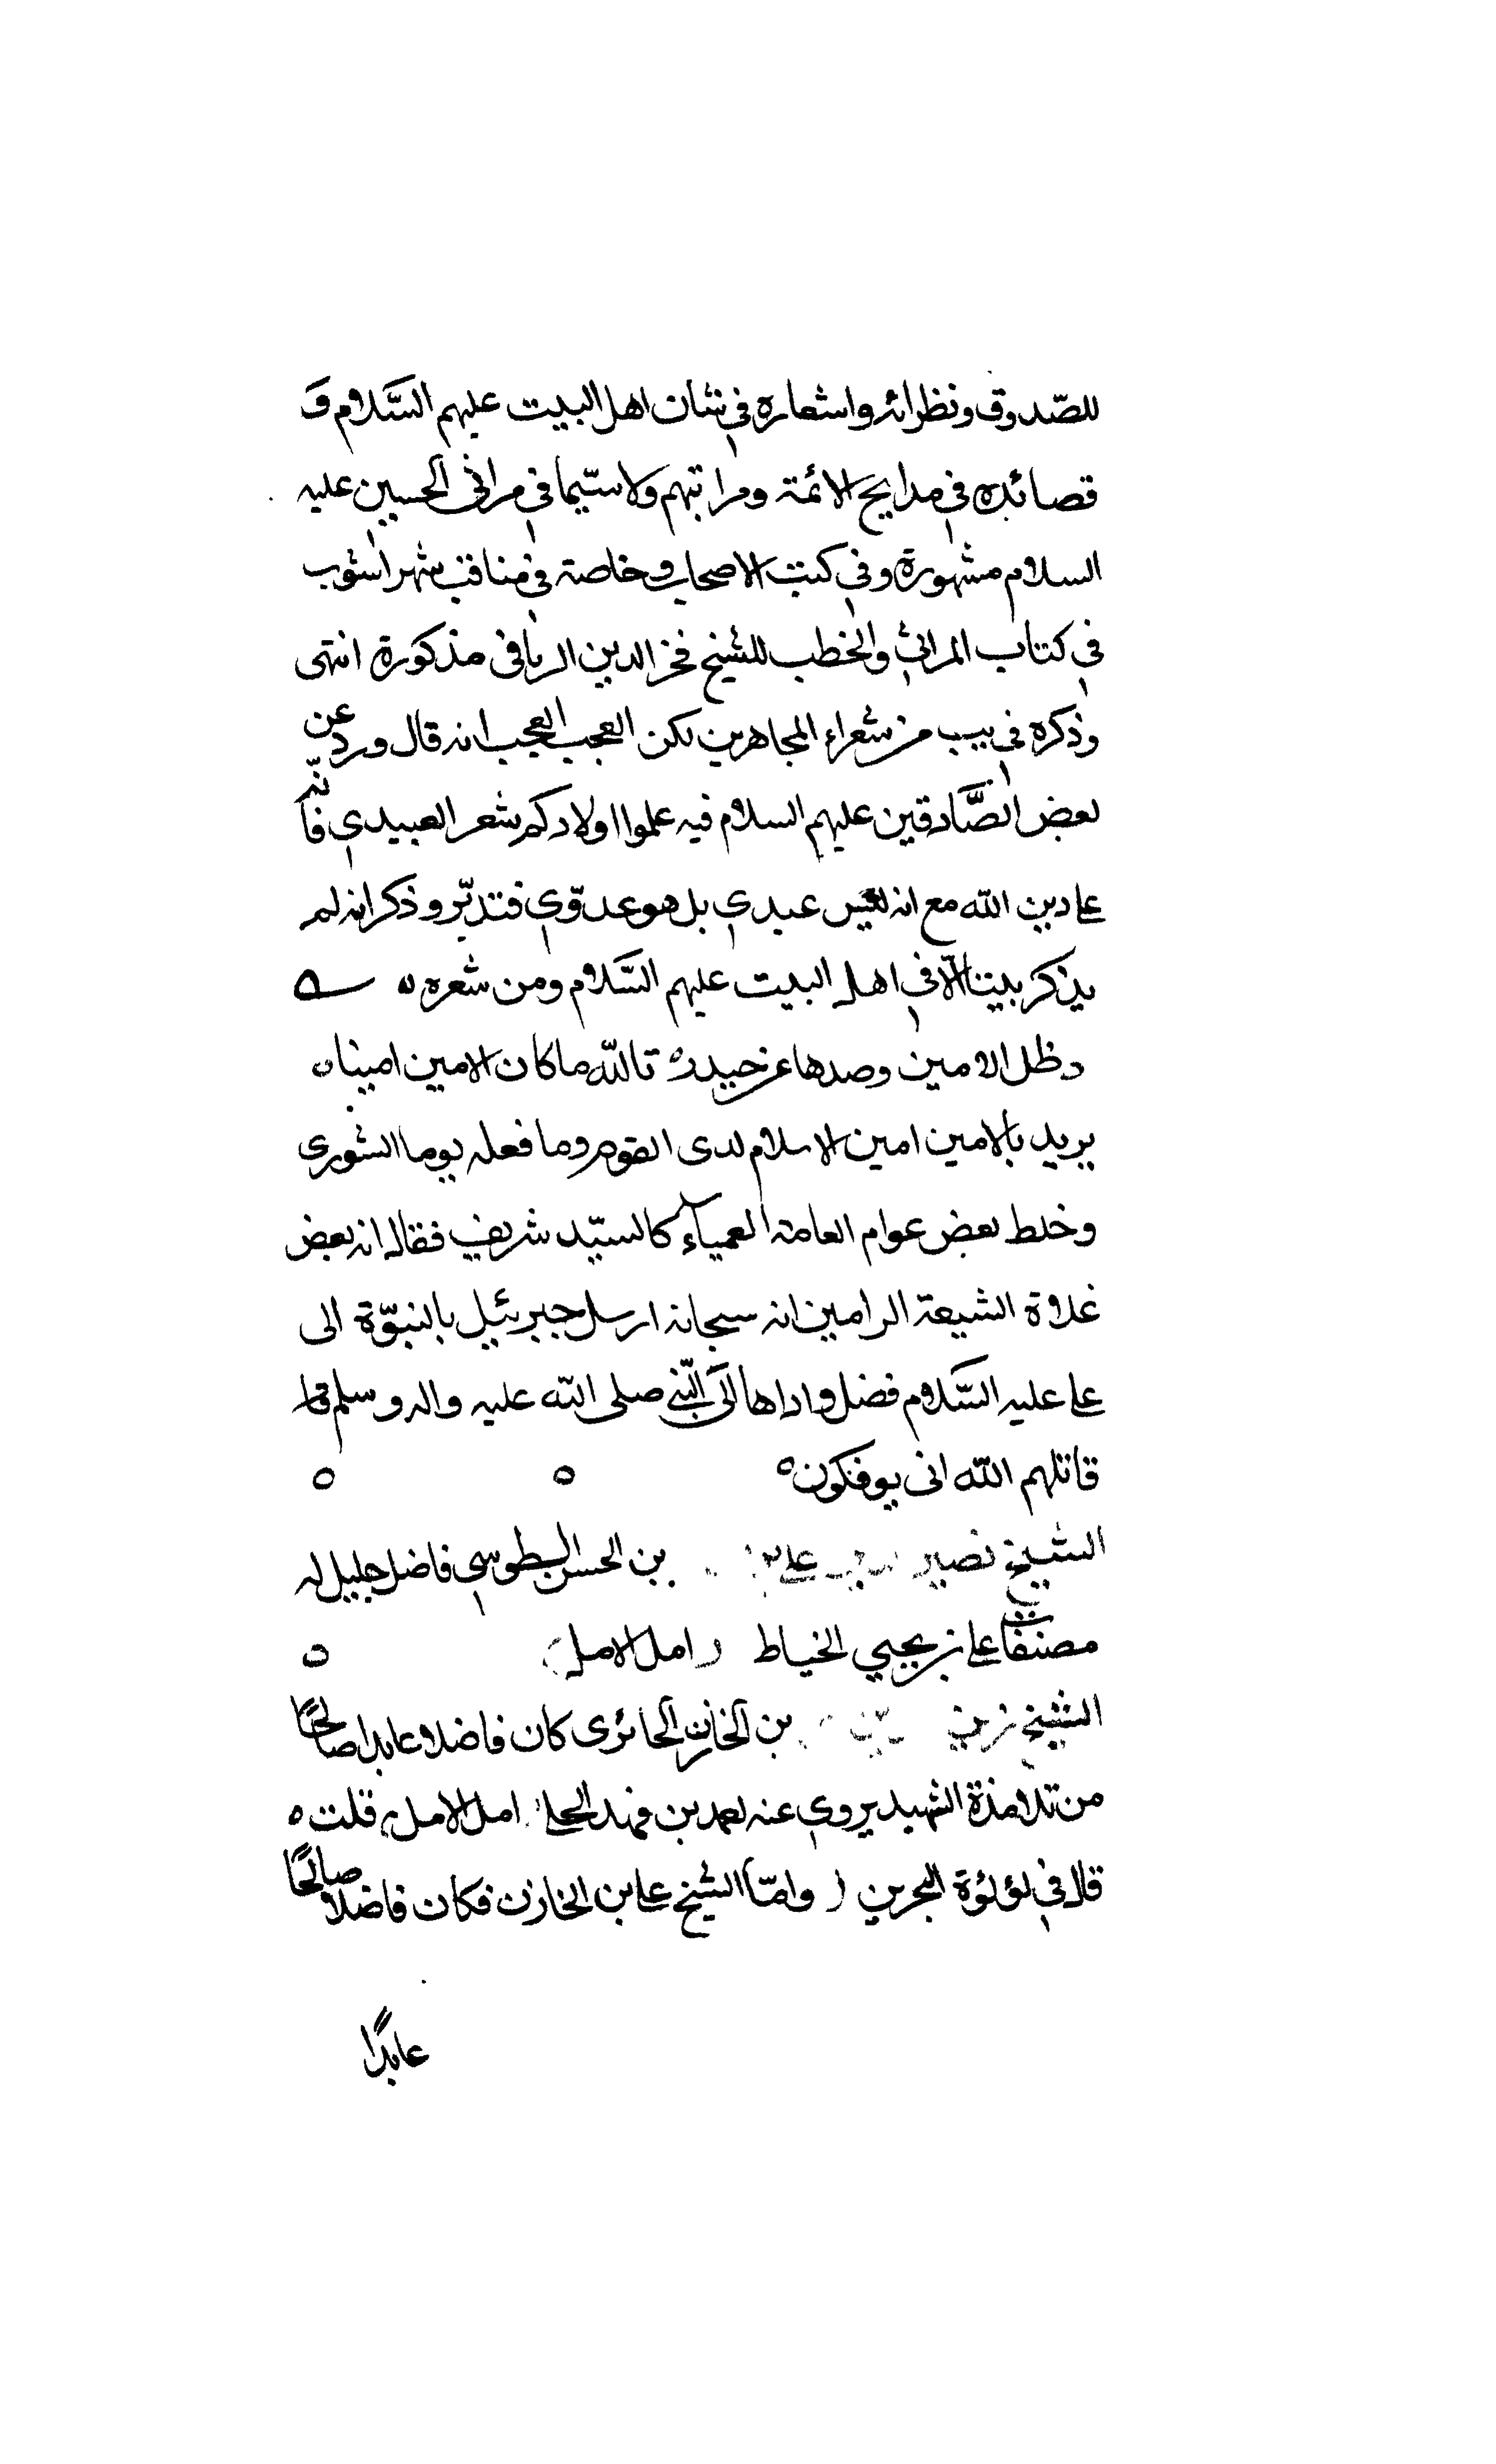 للصّدوق ونظرائه واشعاره في شان اهل البيت عليهم السَّلام وَ
قصائده في مدايح الائمة ومراتبهم ولاسيّما في مراثي الحسين عليه
السلام مشهورة وفي كتب الاصحاب وخاصة في مناقب شهراشوب
في كتاب المراثي والخطب للشيخ فخر الدين الرماحى مذكورة انتهى
وذكره في بيب من شعراء المجاهرين لكن العجب العجب انه قال ورد عن
بعض الصَّادقين عليهم السلام فيه علموا اولادكم شعر العبيدي فانّه
على دين الله مع انه ليس عبدي بل هو عدوّي فتدبّر وذكر انه لم
يذكر بيتا الّا في اهل البيت عليهم السَّلام ومن شعره ه
ظل الامين وصدها عن حيدره تالله ما كان الامين امينا ه
يريد بالامين امين الاسلام لدى القوم وما فعله يوم الشورى
وخلط بعض عوام العامة العمياء كالسيّد شريف فقال انه بعض
غلاة الشيعة الرامين انه سبحانه ارسل جبرئيل بالنبوّة الى
على عليه السَّلام فضل واداها الى النّبي صلى الله عليه واله وسلم
قاتلهم الله انى يوفكون ه ه ه
الشيخ نصير على بن الحسن الطوسي فاضل جليل له
مصنفات على بن يحيي الخياط ( امل الامل ) ه
الشيخ زين بن الخازن الحائرى كان فاضلا عابدا صالحًا
من تلامذة الشهيد يروي عنه احمد بن فهد الحلى امل الامل ) قلت ه
قال في لؤلؤة البحرين ( وامّا الشيخ على بن الخازن فكان فاضلا صالحًا
عابدًا